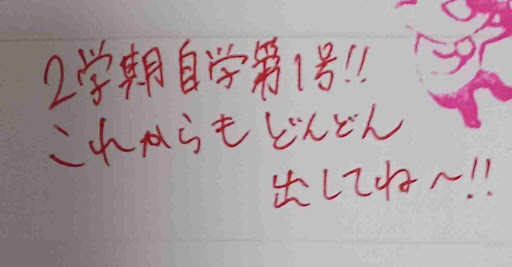 2学期自学第1号!!
これからもどんどん
出してね~!!